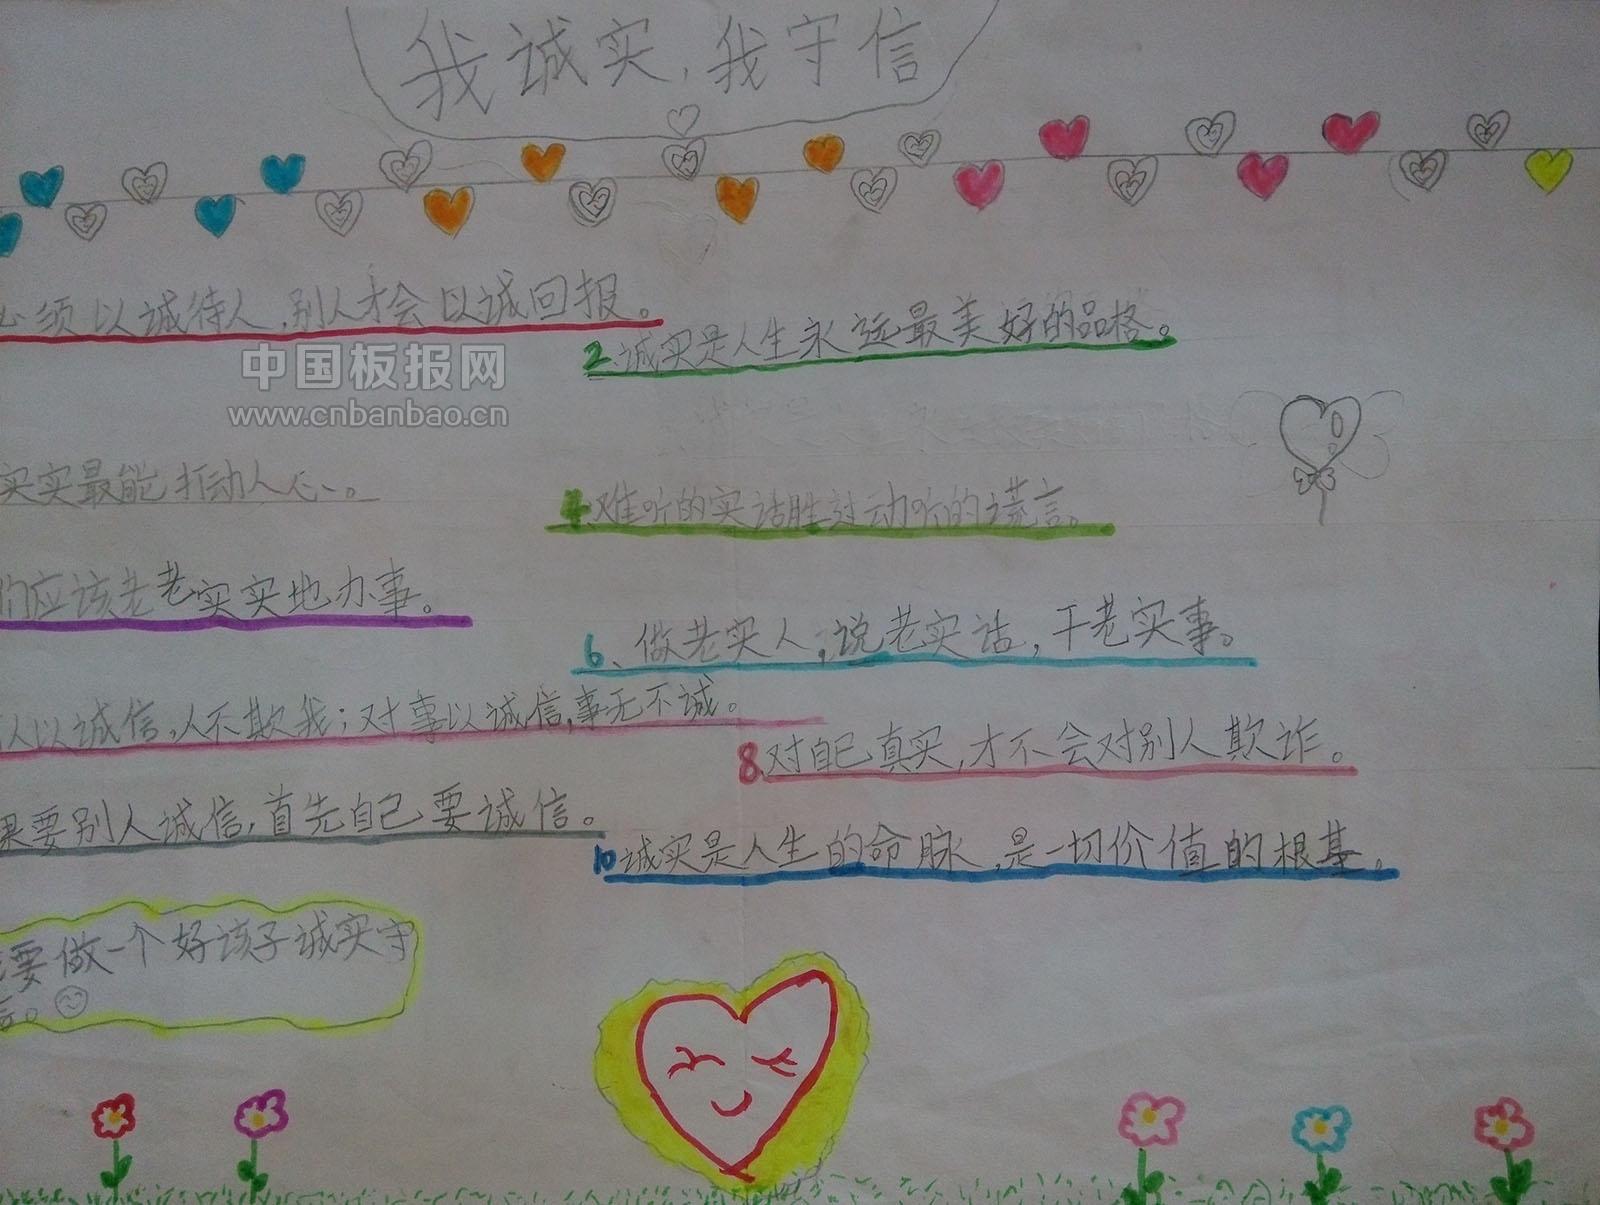 我诚实,我守信
必须以诚待人,别人才会以诚回报。
2、诚实是人生永远最美好的品格。
中国板报网
www.cnbanbao.cn
实实最能打动人心。
4、难听的实话胜过动听的谎言。
们应该老老实实地办事。
6、做老实人,说老实话,干老实事。
人以诚信,人不欺我;对事以诚信,事无不诚。
8、对自己真实,才不会对别人欺诈。
果要别人诚信,首先自己要诚信。
10诚实是人生的命脉,是一切价值的根基。
要做一个好该子诚实守
信。